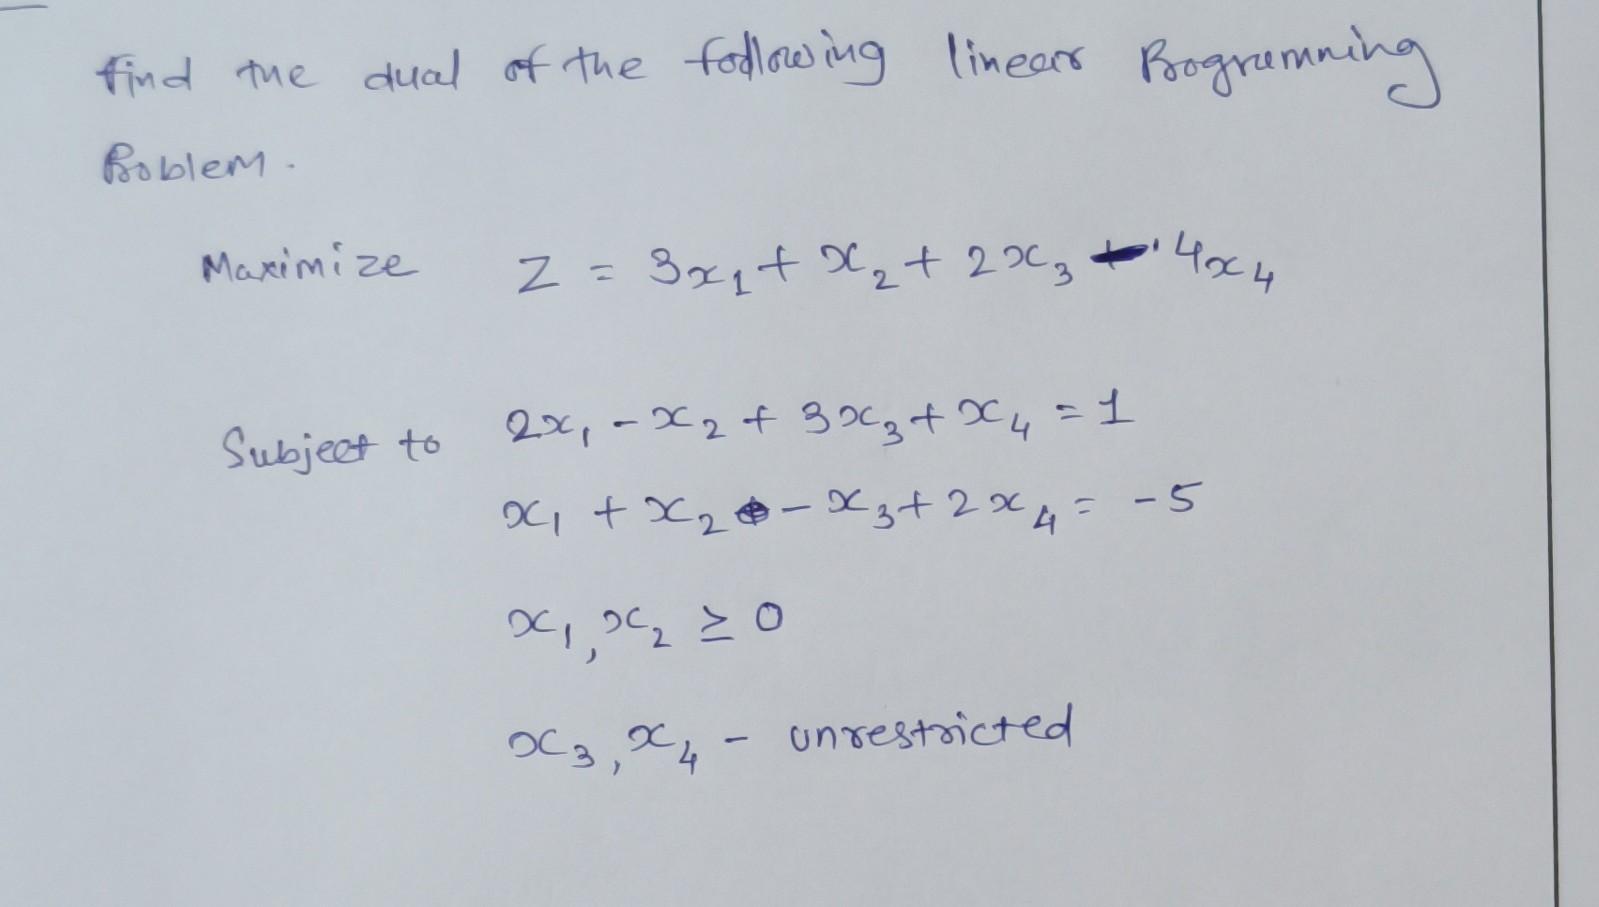 Find the dual of the following linear Programming
Problem.
Maximize Z = 3x₁ + x₂ + 2x₃ - 4x₄
Subject to 2x₁ - x₂ + 3x₃ + x₄ = 1
x₁ + x₂ - x₃ + 2x₄ = -5
x₁, x₂ ≥ 0
x₃, x₄ - unrestricted